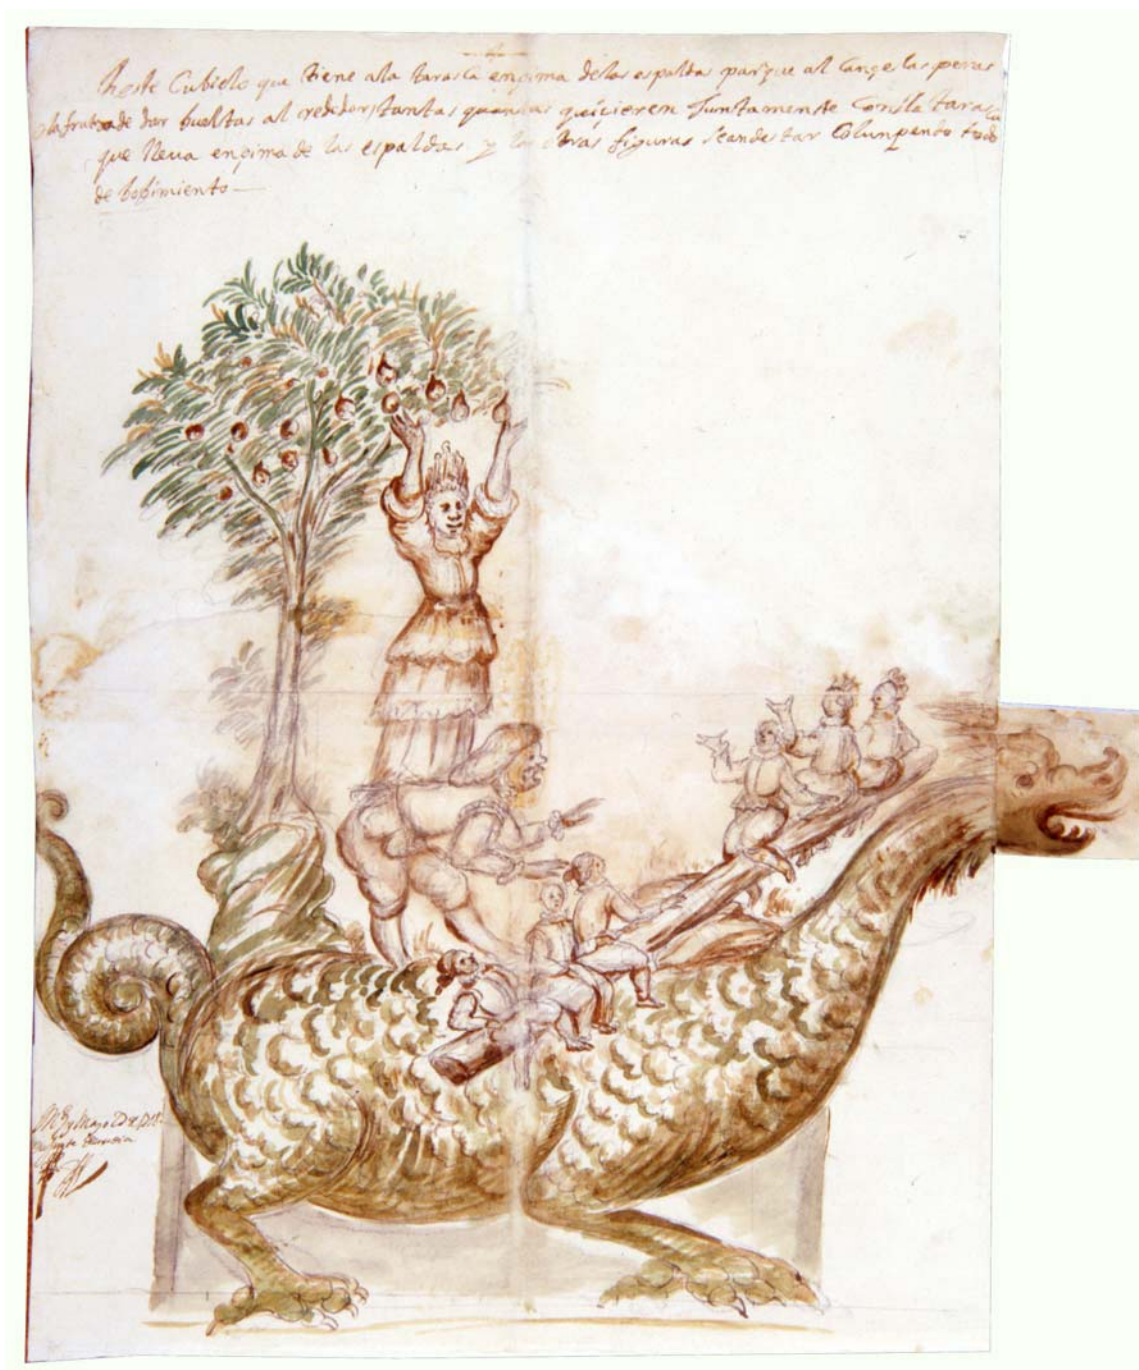 heste Cubielo que tiene ala tarasca engima delas espaldas parque al cançe las peras
o la fruta a de dar bueltas al rededor, tantas quantas quiçieren Juntamente Con la tarasca
que lleva engima de las espaldas y las otras figuras se an de star Colunpando todo
de bobimiento